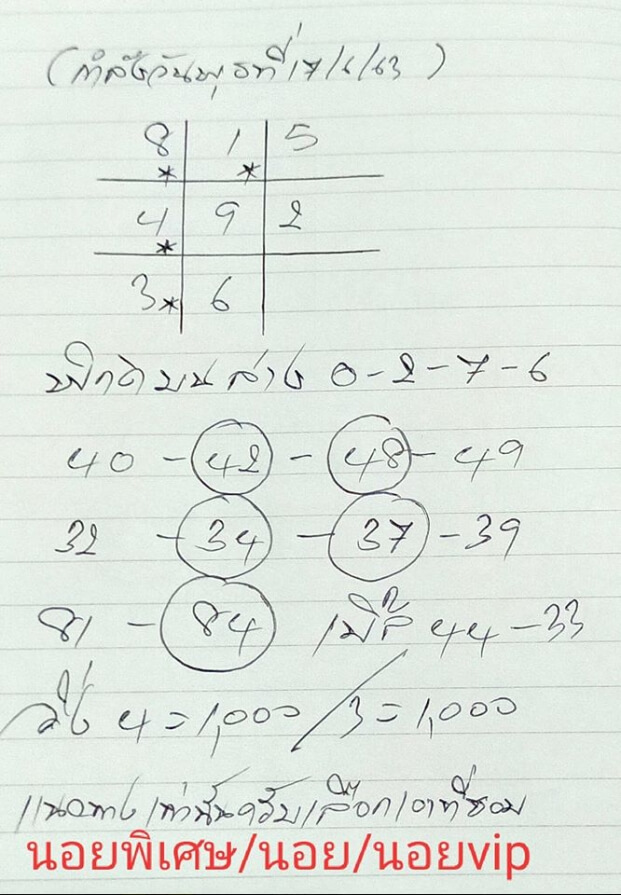 (กำลังวันพุธที่ 17/6/63)
8 1 5
* *
4 9 2
*
3* 6
พิกัด บน ล่าง 0-2-7-6
40 - 42 - 48 - 49
32 - 34 - 37 - 39
81 - 84 เบิ้ล 44-33
วิ่ง 4 = 1,000 / 3 = 1,000
แนวทางเท่านั้นครับเลือกเอาที่ชอบ
นอยพิเศษ/นอย/นอยvip